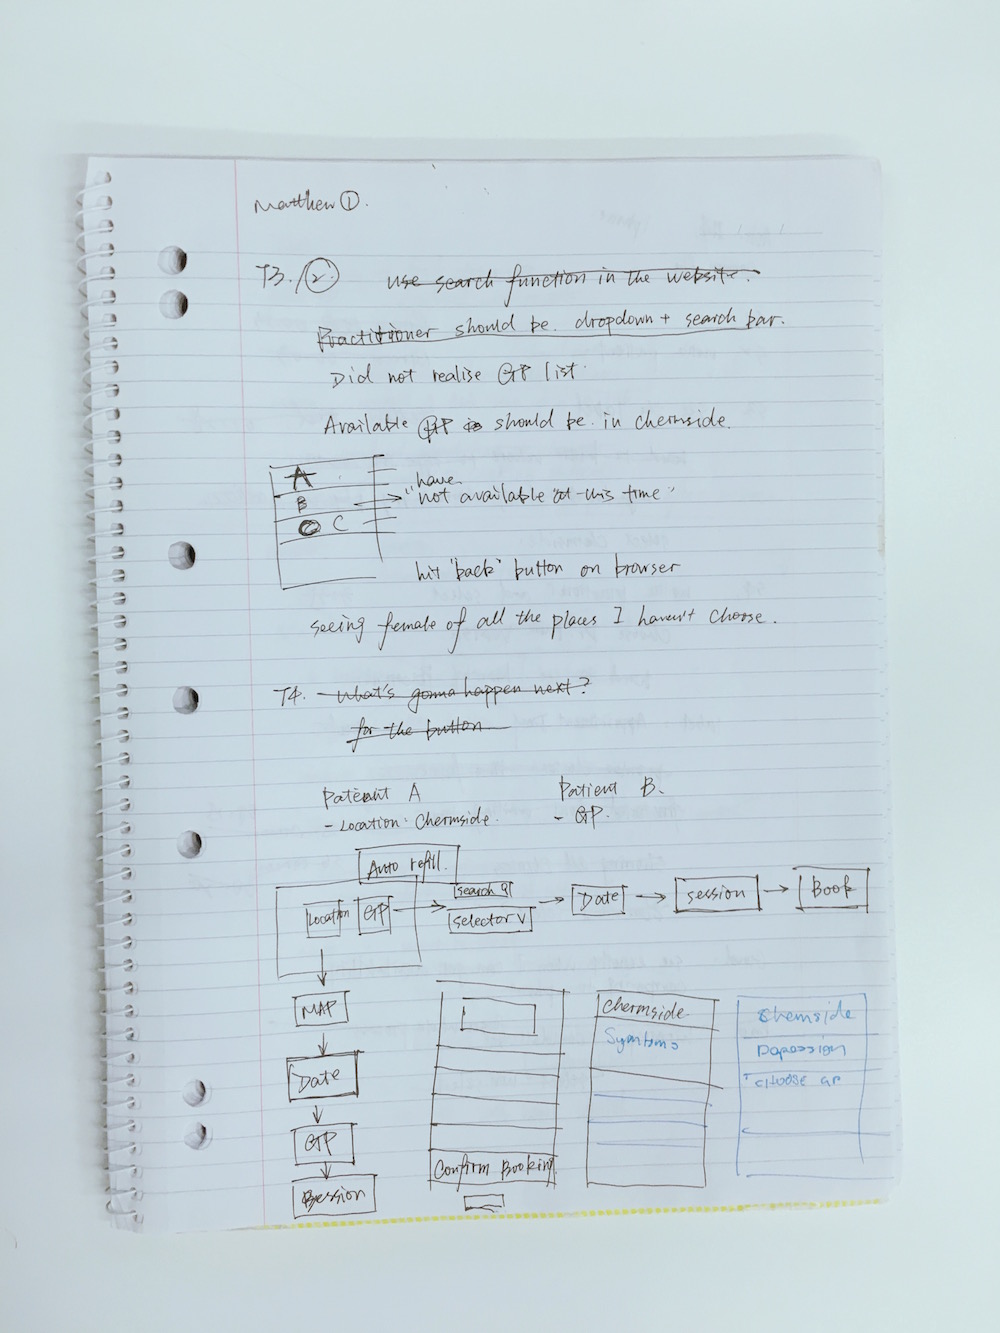 Matthew ①.
T3./② use search function in the website.
Practitioner should be dropdown + search bar.
Did not realise GP list.
Available GP is should be in chermside.
A
B
C
have
"not available at this time"
hit 'back' button on browser
seeing female of all the places I haven't choose.
T4. What's gonna happen next?
for the button
Pateint A
- Location: Chermside.
Patient B.
- GP.
Auto refill.
Location
GP
search
selector v
Date
session
Book
MAP
Date
GP
Session
Confirm Booking
Chermside
Symtoms
Chemside
Depession
choose GP